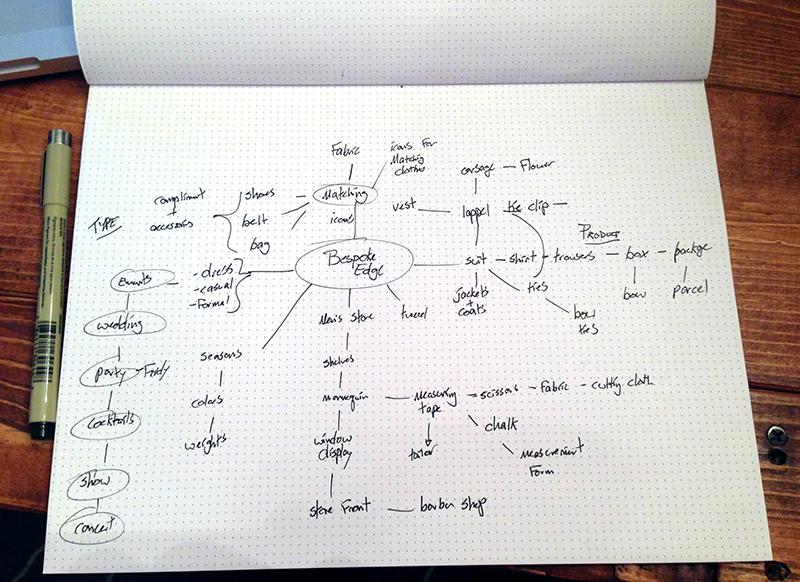 Fabric
icons for
Matchig
clothes
corsage – Flower
TYPE
compliment
+
accessories
shoes
belt
bag
Matching
icons
vest
lappel
tie clip –
PRODUCT
Bespoke
Edge
suit – shirt – trousers – box – package
Events
- dress
- casual
- Formal
jackets
+
coats
ties
bow
parcel
bow
ties
wedding
Men's store
tunnel
seasons
shelves
party – Fridy
colors
mannequin
measuring
tape
scissors – Fabric – cuttig cloth
cocktails
weights
window
display
tailor
chalk
measurement
Form
show
store Front – barber shop
concert